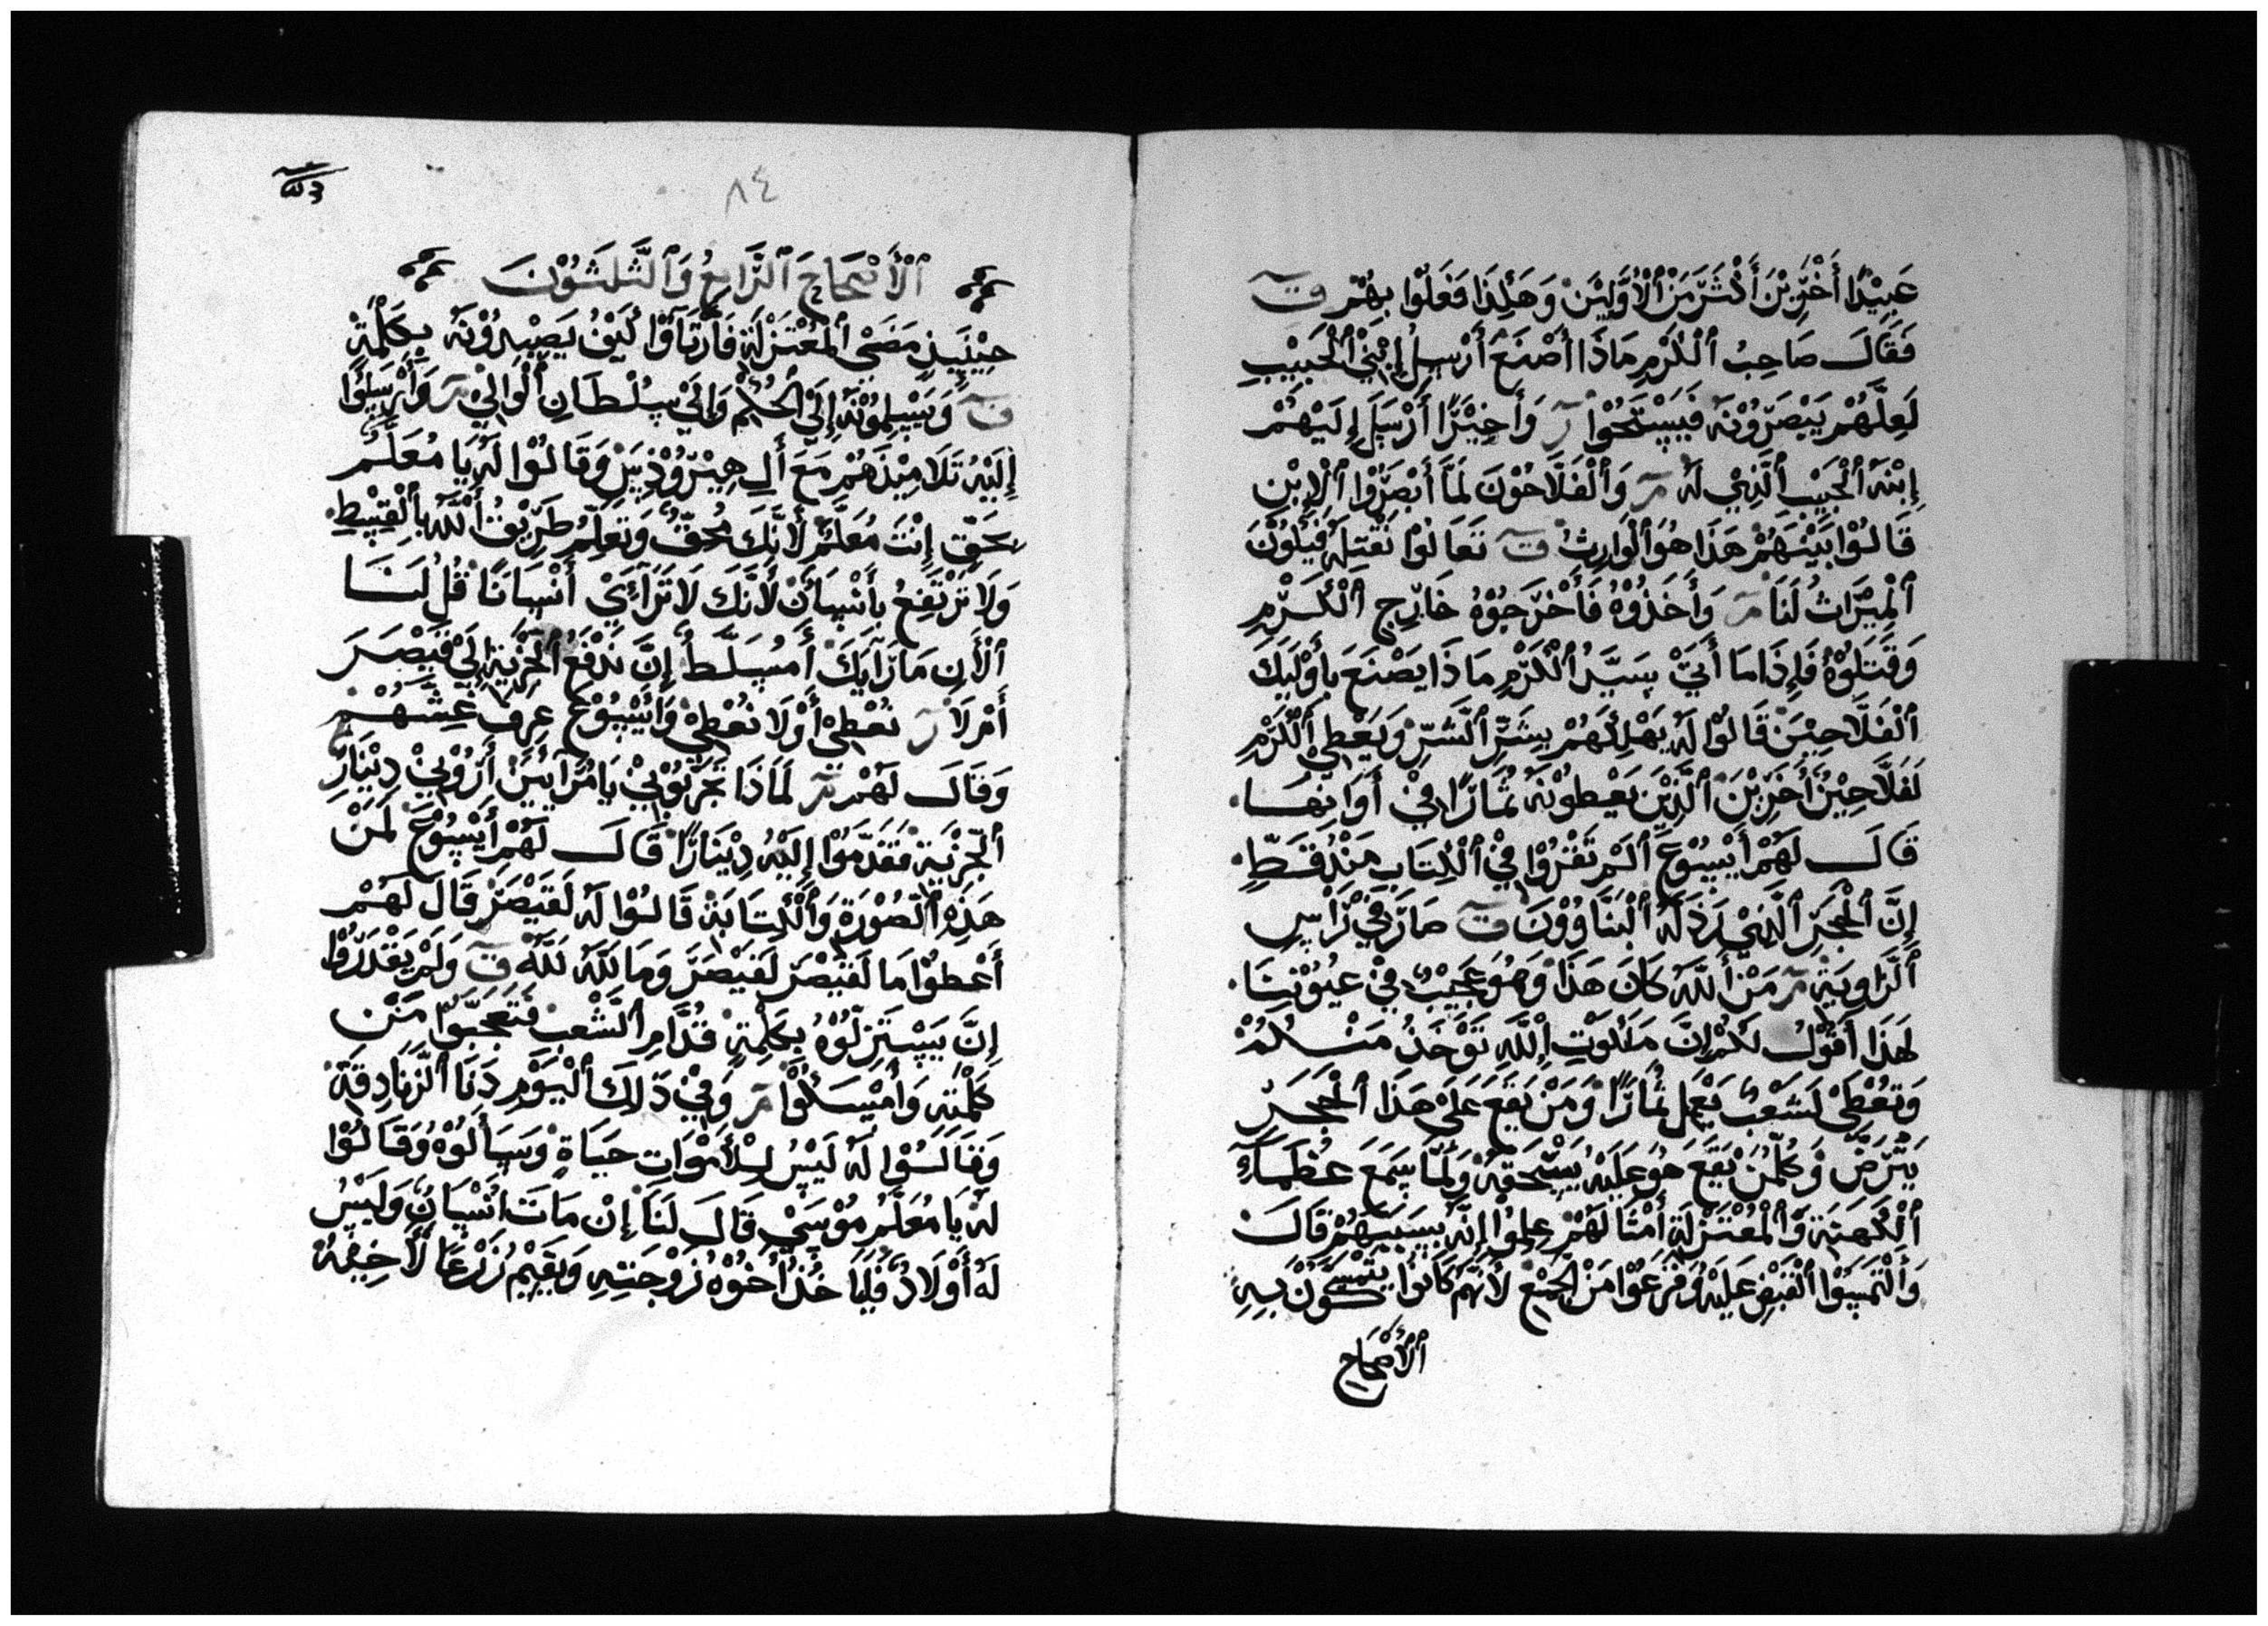 عَبِيْدًا أَخَرِيْنَ أَكْثَرَ مَنْ ٱلْأَوَّلِيْنَ وَهَكَذَا فَعَلُوْا بِهُمْ ق
فَقَالَ صَاحِبُ ٱلْكَرْمِ مَاذَا أَصْنَعْ أَرْسِلُ إِبْنِيْ ٱلْحَبِيْبِ
لَعِلَّهُمْ يَبْصَرُوْنَهُ فَيَسْتَحُوْا ر وَأَخِيْرًا أَرْسَلَ إِلَيْهُمْ
إِبْنَهُ ٱلْحَبِيْبِ ٱلَّذِيْ لَهُ مر وَٱلْفَلَّاحُوْنَ لَمَّا أَبْصَرُوْا ٱلْإِبْنِ
قَالُوْا بَيْنَهُمْ هَذَا هُوَ ٱلْوَارِثُ ق تَعَالُوْا نَقْتِلَهُ فَيَكُوْنَ
ٱلْمِيْرَاثُ لَنَا مر وَأَخَذُوْهُ فَأَخْرَجُوْهُ خَارِجِ ٱلْكَرْمِ
وَقَتَلُوْهُ فَإِذَا مَا أَتَىْ سَيِّدُ ٱلْكَرْمِ مَاذَا يَصْنَعَ بِأُوْلَئِكَ
ٱلْفَلَّاحِيْنَ قَالُوْا لَهُ يَهْلِكَهُمْ بِشَرِّ ٱلشَّرِّ وَيَعْطِيْ ٱلْكَرْمِ
لَفَلَّاحِيْنَ أُخَرِيْنَ ٱلَّذِيْنَ يَعْطُوْنَهُ ثَمَارًا فِيْ أَوَانِهَا
قَالَ لَهُمْ أَيْسُوْعَ أَلَمْ تَقْرُوْا فِيْ ٱلْكِتَابِ مَنْذُ قَطِّ
إِنَّ ٱلْحَجَرَ ٱلَّذِيْ رَذَلَهُ ٱلْبَنَّاوُوْنَ ق صَارَ فِيْ رَاسِ
ٱلزَّاوِيَةِ مر مَنْ أَللَّهُ كَانَ هَذَا وَهُوَ عَجِيْبٌ فِيْ عِيُوْنِنَا
لَهَذَا أَقُوْلُ لَكُمْ إِنَّ مَلَكُوْتِ إِللَّهِ تَوْخَذُ مَنْكُمْ
وَتَعْطَىْ لَشَعْبٌ يَعْمِلَ ثَمَارًا وَمَنْ يَقَعَ عَلَىْ هَذَا ٱلْحَجَرِ
يَتْرَضَّ وَكُلْمَنْ يَقَعَ هُوَ عَلَيْهُ يَسْحَقَهُ وَلَمَّا سَمَعَ عُظَمَآءِ
ٱلْكَهَنَةِ وَٱلْمُعْتَزِلَةِ أَمْثَالَهُمْ عِلِمُوْا إِنَّهُ بِسَبَبَهُمْ قَالَ
وَٱلْتَمَسُوْا ٱلْقَبْضِ عَلَيْهُ وَفَزَعُوْا مَنْ ٱلْجَمِيْعَ لَأَنَّهُمْ كَانُوْا يَتَمَسَّكُوْنَ بِهِ
ٱلْأَصْحَاحِ
٨٤
ٱلْأَصْحَاحِ ٱلرَّابِعُ وَٱلثَّلَثُوْنَ
حِيْنَيِذٍ مَضَىْ ٱلْمُعْتَزِلَةِ فَأَرْتَآوْا كَيْفُ يَصْيِدُوْنَهُ بِكَلْمَةٍ
ق وَيَسْلِمُوْنَهُ إِلَىْ ٱلْحُكْمُ وَإِلَىْ سُلْطَانِ ٱلْوَالِيْ مر وَأَرْسَلُوْا
إِلَيْهُ تَلَامِيْذَهُمْ مَعَ أَلِ هِيْرُوْذِسَ وَقَالُوْا لَهُ يَا مُعَلَّمُ
بَحَقٍّ إِنْتَ مُعَلَّمٌ لَأَنَّكَ مُحَقٌّ وَتَعَلِّمُ طَرِيْقُ أَللَّهُ بِٱلْقِسِطِ
وَلَا تَرْتَفِعُ بِأَنْسَانٌ لَأَنَّكَ لَا تَرَآئِيْ أَنْسَانًا قُلُ لَنَا
ٱلْأَنِ مَا رَآيَكَ أَمُسَلَّطٌ إِنَّ نَدْفَعُ ٱلْجَزْيَةِ إِلَىْ قَيْصَرَ
أَمْ لَا ر نَعْطِيْ أَوْلَا نَعْطِيْ وَأَيْسُوْعَ عِرِفَ غِشَّهُمْ
وَقَالَ لَهُمْ مر لَمَاذَا تَجَرِّبُوْنِيْ يَا مُرَآيِيْنَ أَرُوْنِيْ دِيْنَارَ
ٱلْجِزْيَةِ فَقَدَّمُوْا إِلَيْهُ دِيْنَارًا قَالَ لَهُمْ أَيْسُوْعَ لَمَنْ
هَذِهِ ٱلصُّوْرَةِ وَٱلْكِتَابَةِ قَالُوْا لَهُ لَقَيْصَرَ قَالَ لَهُمْ
أَعْطُوْا مَا لَقَيْصَرَ لَقَيْصَرَ وَمَا للَّهُ للَّهُ ق وَلَمْ يَقْدَرُوْا
إِنَّ يَسْتَزِلُّوْهُ بِكَلِمَةٍ قُدَّامِ ٱلشَّعْبِ فَتَعَجَّبُوْا مَنْ
كَلْمَتِهِ وَأَمْسَكُوْا مر وَفِيْ ذَلِكَ ٱلْيَوْمِ دَنَا ٱلزَّنَادِقَةَ
وَقَالُوْا لَهُ لَيْسُ لِلْأَمْوَاتِ حَيَاةٍ وَسَأَلُوْهُ وَقَالُوْا
لَهُ يَا مُعَلَّمُ مُوْسَىْ قَالَ لَنَا إِنْ مَاتَ انْسَانٌ وَلَيْسُ
لَهُ أَوْلَادٌ فَلْيَا خُذُ أَخُوْهُ زَوْجَتِهِ وَيَقِيْمُ زَرْعًا لَأَخِيْهُ